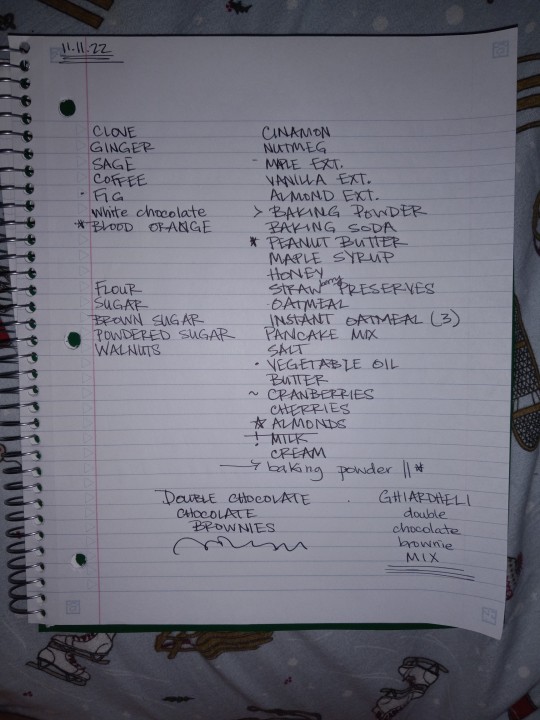 11.11.22
CLOVE CINAMON
GINGER NUTMEG
SAGE - MAPLE EXT.
COFFEE VANILLA EXT.
· FIG ALMOND EXT.
white chocolate > BAKING POWDER
* BLOOD ORANGE BAKING SODA
* PEANUT BUTTER
MAPLE SYRUP
HONEY
FLOUR STRAWberry PRESERVES
SUGAR OATMEAL
BROWN SUGAR INSTANT OATMEAL (3)
POWDERED SUGAR PANCAKE MIX
WALNUTS SALT
· VEGETABLE OIL
BUTTER
~ CRANBERRIES
CHERRIES
* ALMONDS
! MILK
CREAM
→ baking powder || *
DOUBLE CHOCOLATE · GHIARDHELI
CHOCOLATE double
BROWNIES chocolate
brownie
MIX